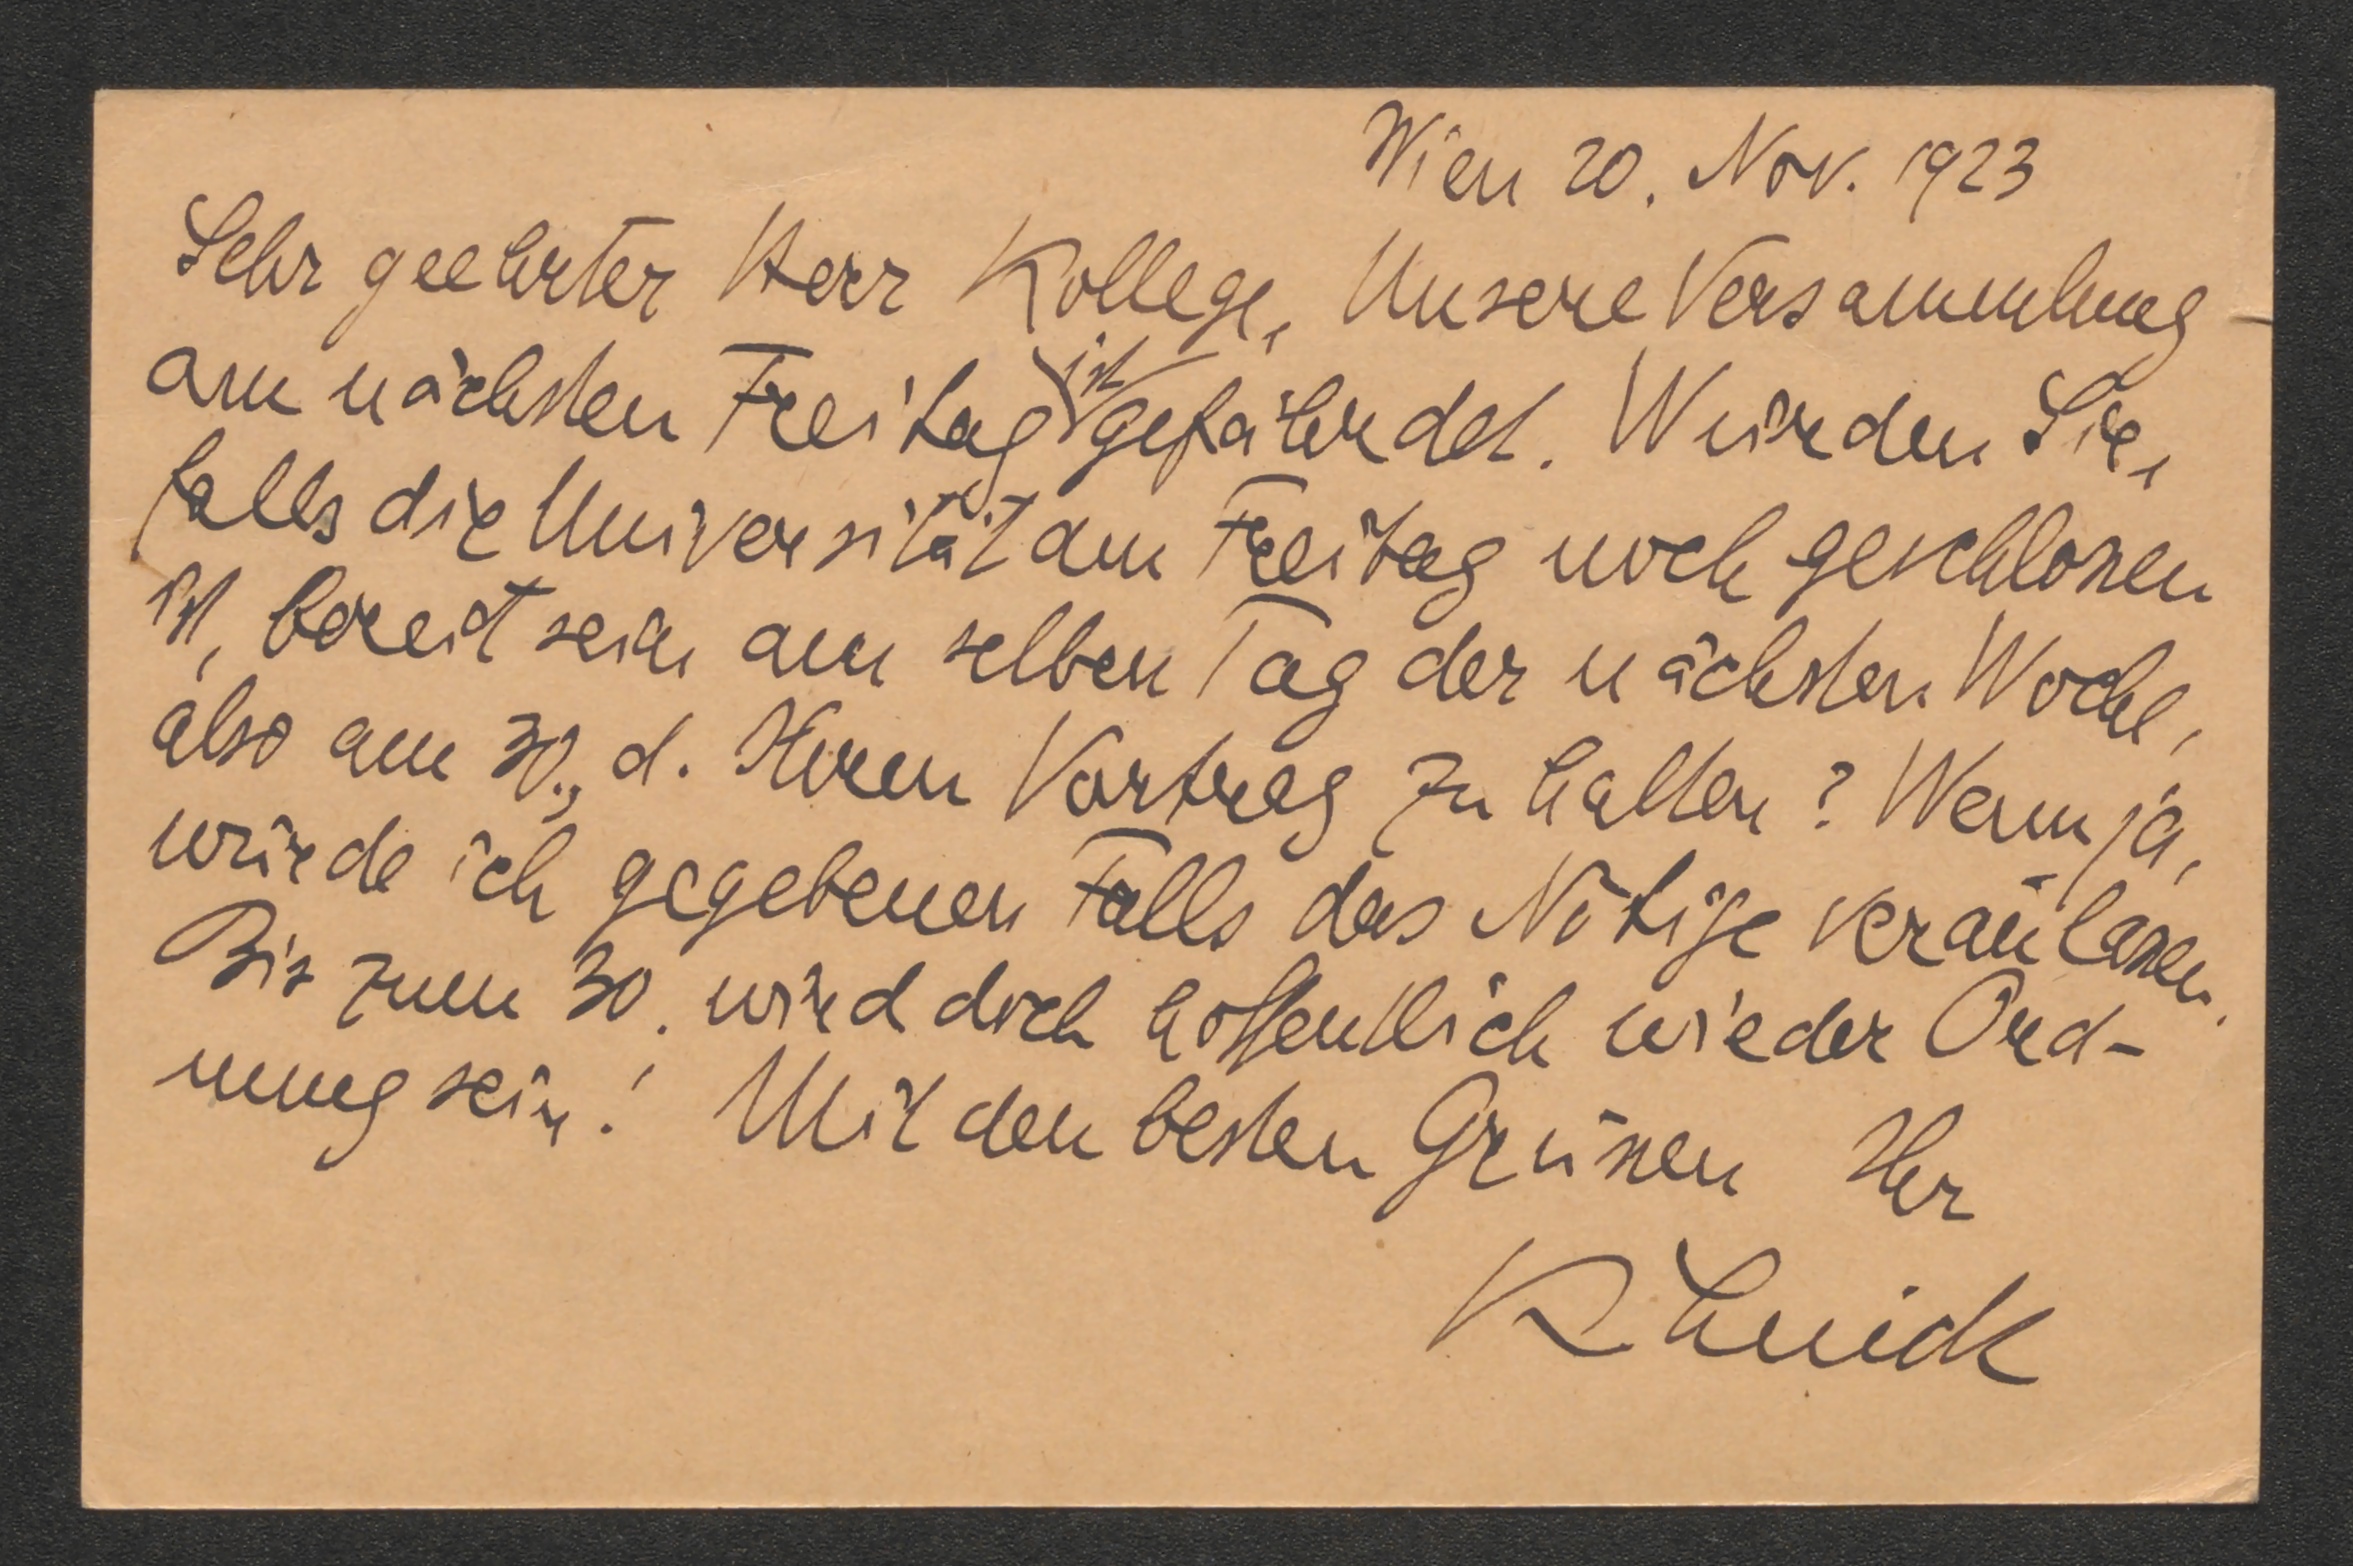 Wien 20. Nov. 1923
Sehr geehrter Herr Kollege, Unsere Versammlung
am nächsten Freitag ist gefährdet. Würden Sie,
falls die Universität am Freitag noch geschlossen
ist, bereit sein am selben Tag der nächsten Woche,
also am 30., d. Ihren Vortrag zu halten? Wenn ja,
würde ich gegebenen Falls das Nötige veranlassen.
Bis zum 30. wird doch hoffentlich wieder Ord-
nung sein! Mit den besten Grüssen Ihr
K Luick